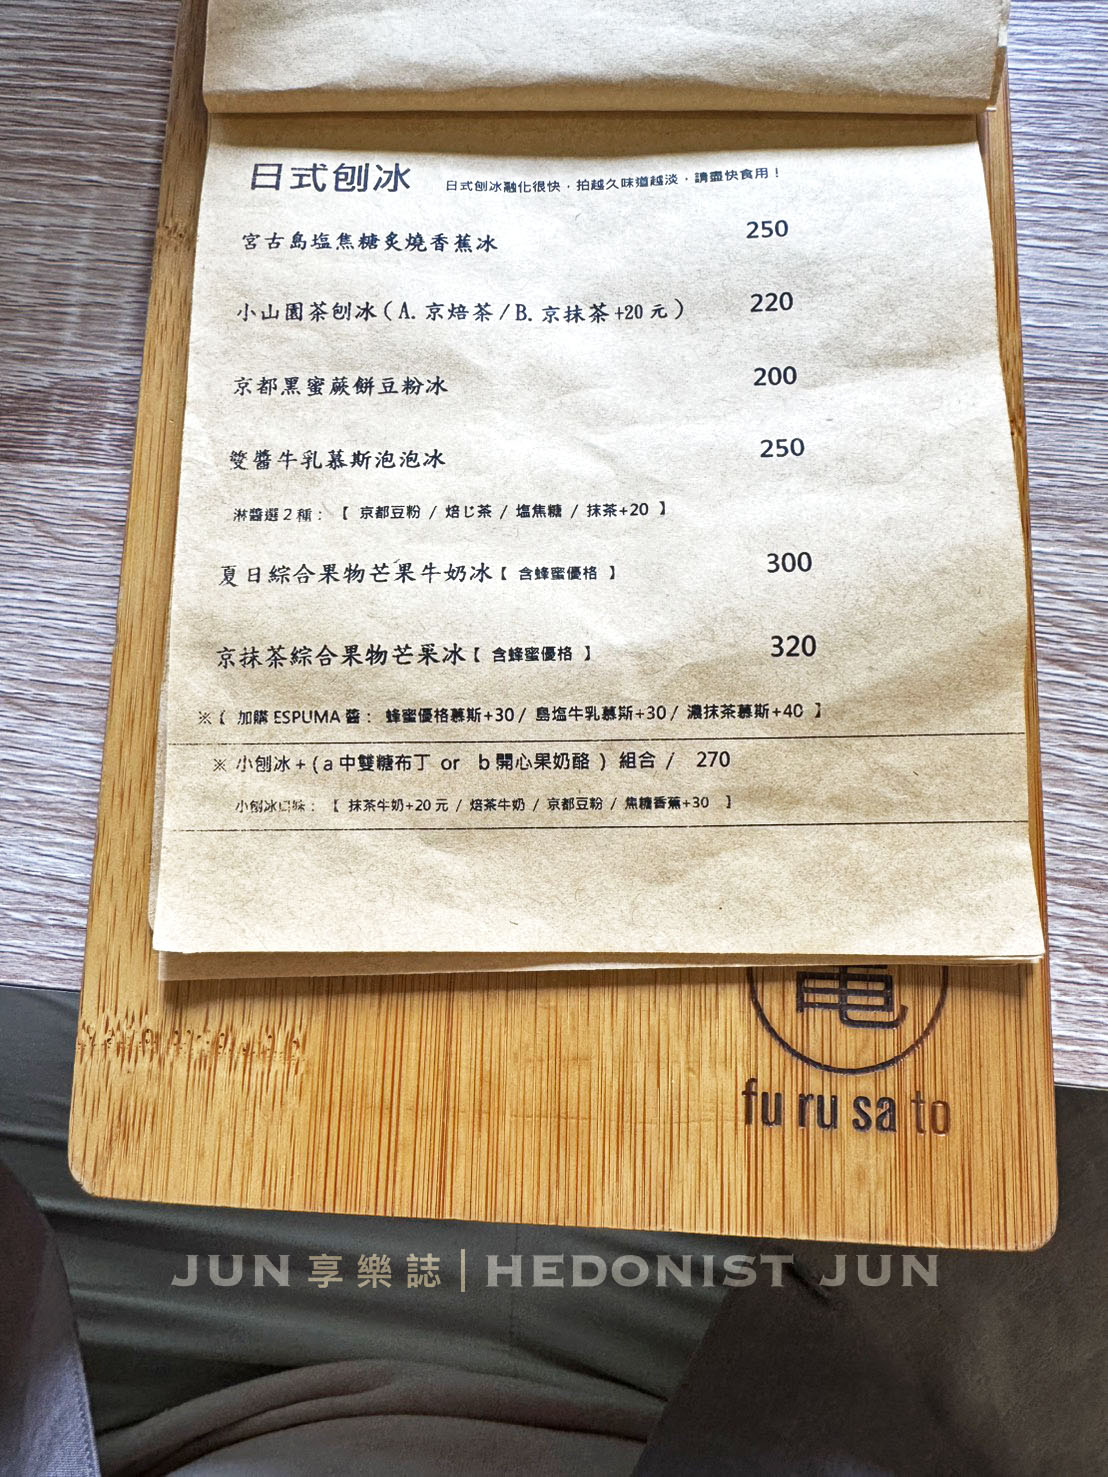 日式刨冰 日式刨冰融化很快，拍越久味道越淡，請盡快食用！
宮古島塩焦糖炙燒香蕉冰 250
小山園茶刨冰（A. 京焙茶/B. 京抹茶+20元） 220
京都黑蜜蕨餅豆粉冰 200
雙醬牛乳慕斯泡泡冰 250
淋醬選2種：【 京都豆粉 / 焙じ茶 / 塩焦糖 / 抹茶+20 】
夏日綜合果物芒果牛奶冰【 含蜂蜜優格 】 300
京抹茶綜合果物芒果冰【 含蜂蜜優格 】 320
※【 加購 ESPUMA 醬： 蜂蜜優格慕斯+30 / 島塩牛乳慕斯+30 / 濃抹茶慕斯+40 】
※ 小刨冰 + ( a 中雙糖布丁 or b 開心果奶酪 ) 組合 / 270
小刨冰口味：【 抹茶牛奶+20元 / 焙茶牛奶 / 京都豆粉 / 焦糖香蕉+30 】
fu ru sa to
JUN 享樂誌 | HEDONIST JUN